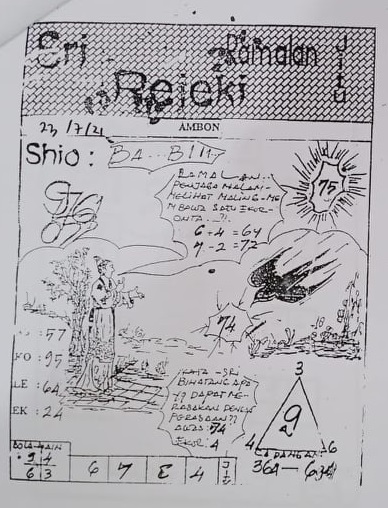 Sri
Ramalan
Rejeki
JITU
23/7/21
AMBON
Shio: BA...BI
RAMALAN...
PENJAGA MALAM-
MELIHAT MALING-ME
MBAWA SATU EKOR-
ONTA...?!
6-4=64
7-2=72
75
976
74
: 57
FO : 95
LE : 64
EK : 24
KATA-SRI
BINATANG APA
YG DAPAT ME-
RASAKAN DENGN
PERASAAN??
AWAS: 74
EKOR: 4
3
9
4 6
CADANGAN
364 —
BOLA-MAIN
9 4
6 3
6 7 E 4 JITU